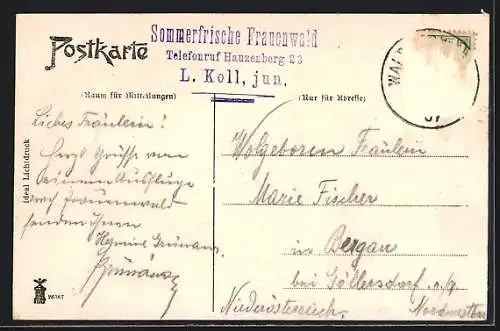 Postkarte
Sommerfrische Frauenwald
Telefonruf Hauzenberg 23
L. Koll, jun.
WALD
(Raum für Mitteilungen)
(Nur für Adresse)
Liebes Fräulein!
Herzl Grüsse von
seinem Ausfluge
nach Frauenwald
senden Ihnen
Hermine Grünans
Wolgeboren Fräulein
Marie Fischer
in Bergau
bei Göllersdorf a/d
Niederösterreich.
Ideal Lichtdruck